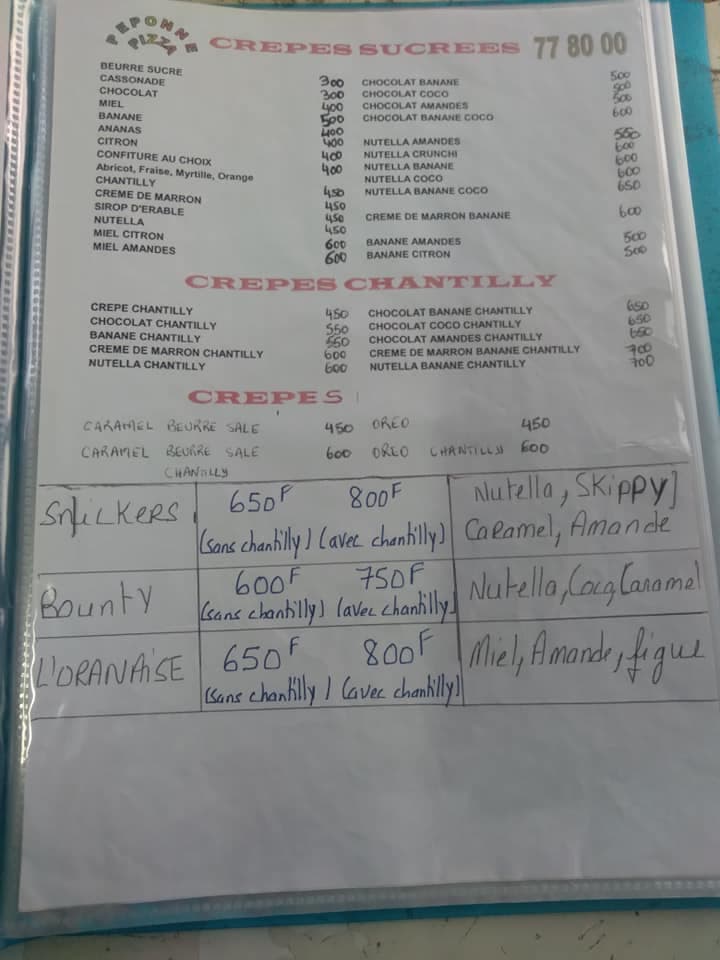 PEPONNE PIZZA
CREPES SUCREES 77 80 00
BEURRE SUCRE
CASSONADE 300
CHOCOLAT 300
MIEL 400
BANANE 500
ANANAS 400
CITRON 400
CONFITURE AU CHOIX 400
Abricot, Fraise, Myrtille, Orange 400
CHANTILLY
CREME DE MARRON 450
SIROP D'ERABLE 450
NUTELLA 450
MIEL CITRON 450
MIEL AMANDES 600
600
CHOCOLAT BANANE 500
CHOCOLAT COCO 500
CHOCOLAT AMANDES 500
CHOCOLAT BANANE COCO 600
NUTELLA AMANDES
NUTELLA CRUNCHI 600
NUTELLA BANANE 600
NUTELLA COCO 600
NUTELLA BANANE COCO 650
CREME DE MARRON BANANE 600
BANANE AMANDES 500
BANANE CITRON 500
CREPES CHANTILLY
CREPE CHANTILLY 450
CHOCOLAT CHANTILLY 550
BANANE CHANTILLY 550
CREME DE MARRON CHANTILLY 600
NUTELLA CHANTILLY 600
CHOCOLAT BANANE CHANTILLY 650
CHOCOLAT COCO CHANTILLY 650
CHOCOLAT AMANDES CHANTILLY 650
CREME DE MARRON BANANE CHANTILLY 700
NUTELLA BANANE CHANTILLY 700
CREPES
CARAMEL BEURRE SALE 450 OREO 450
CARAMEL BEURRE SALE 600 OREO CHANTILLY 600
CHANTILLY
SNICKERS 650F 800F Nutella, Skippy
(sans chantilly) (avec chantilly) Caramel, Amande
Bounty 600F 750F Nutella, Coco, Caramel
(sans chantilly) (avec chantilly)
L'ORANAISE 650F 800F Miel, Amande, figue
(sans chantilly) (avec chantilly)